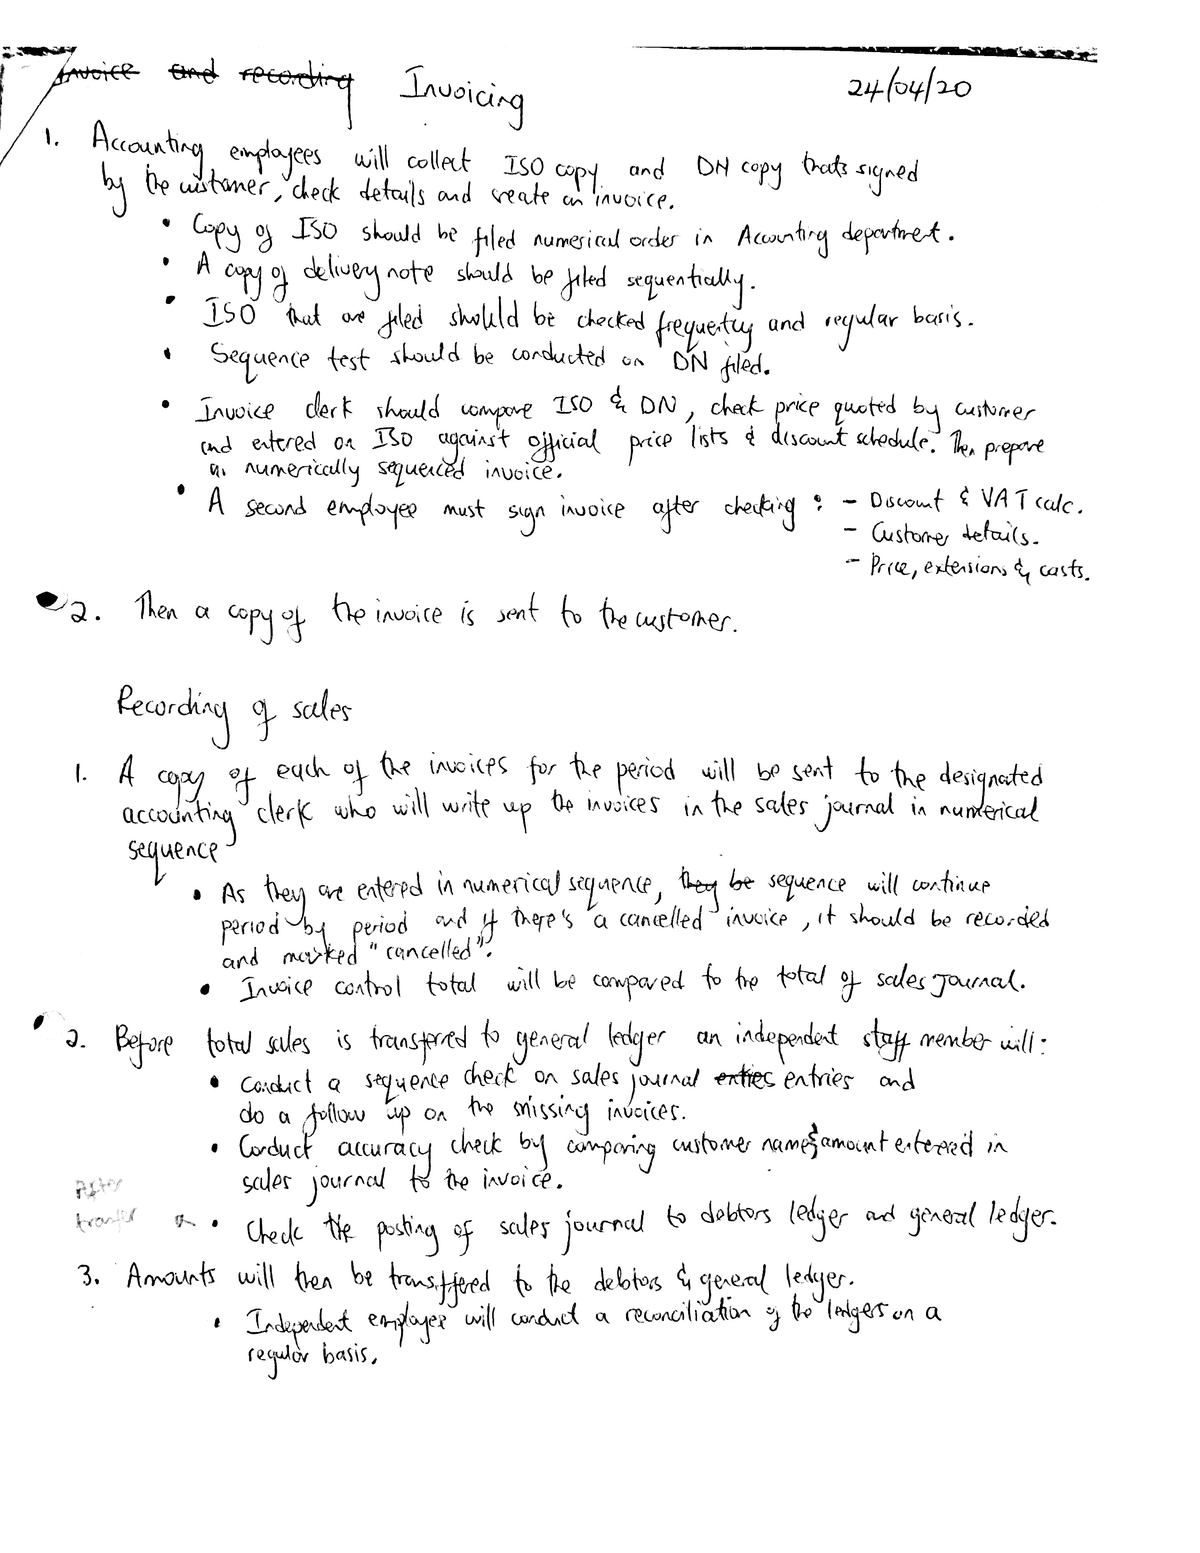 Invoice and recording Invoicing 24/04/20
1. Accounting employees will collect ISO copy and DN copy thats signed
by the customer, check details and create an invoice.
• Copy of ISO should be filed numerical order in Accounting department.
• A copy of delivery note should be filed sequentially.
• ISO that are filed should be checked frequently and regular basis.
• Sequence test should be conducted on DN filed.
• Invoice clerk should compare ISO & DN, check price quoted by customer
and entered on ISO against official price lists & discount schedule. Then prepare
an numerically sequenced invoice.
• A second employee must sign invoice after checking: - Discount & VAT calc.
- Customer details.
- Price, extensions & costs.
2. Then a copy of the invoice is sent to the customer.
Recording of sales
1. A copy of each of the invoices for the period will be sent to the designated
accounting clerk who will write up the invoices in the sales journal in numerical
sequence
• As they are entered in numerical sequence, they be sequence will continue
period by period and if there's a cancelled invoice, it should be recorded
and marked "cancelled".
• Invoice control total will be compared to the total of sales Journal.
2. Before total sales is transferred to general ledger an independent staff member will:
• Conduct a sequence check on sales journal enties entries and
do a follow up on the missing invoices.
• Conduct accuracy check by comparing customer names & amount entered in
sales journal to the invoice.
After
transfer • Check the posting of sales journal to debtors ledger and general ledger.
3. Amounts will then be transffered to the debtors & general ledger.
• Independent employee will conduct a reconciliation of the ledgers on a
regular basis.